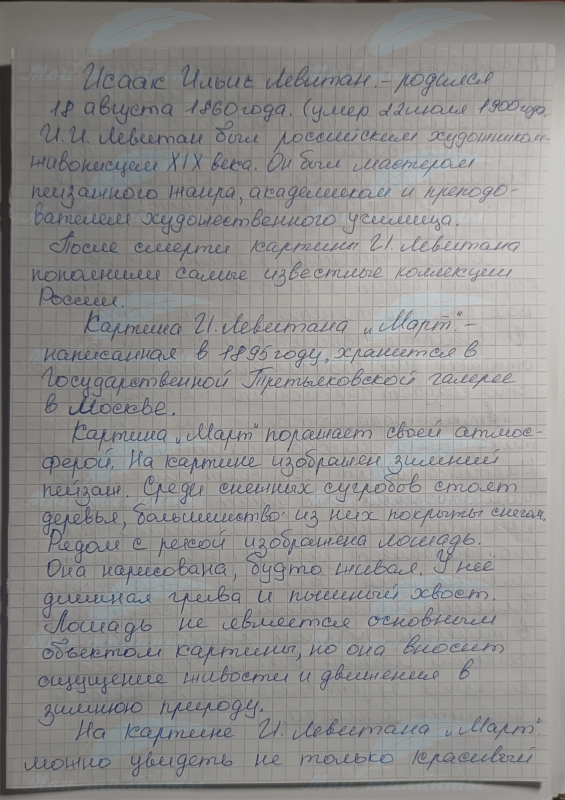 Исаак Ильич Левитан. – родился
18 августа 1860 года. (умер 22 июля 1900 года.
И.И. Левитан был российским художником-
живописцем XIX века. Он был мастером
пейзажного жанра, академиком и препода-
вателем художественного училища.
После смерти картины И. Левитана
пополнили самые известные коллекции
России.
Картина И. Левитана „Март“ –
написанная в 1895 году, хранится в
Государственной Третьяковской галерее
в Москве.
Картина „Март“ поражает своей атмос-
ферой. На картине изображен зимний
пейзаж. Среди снежных сугробов стоят
деревья, большинство из них покрыты снегом.
Рядом с рекой изображена лошадь.
Она нарисована, будто живая. У неё
длинная грива и пышный хвост.
Лошадь не является основным
объектом картины, но она вносит
ощущение живости и движения в
зимнюю природу.
На картине И. Левитана „Март“
можно увидеть не только красивый